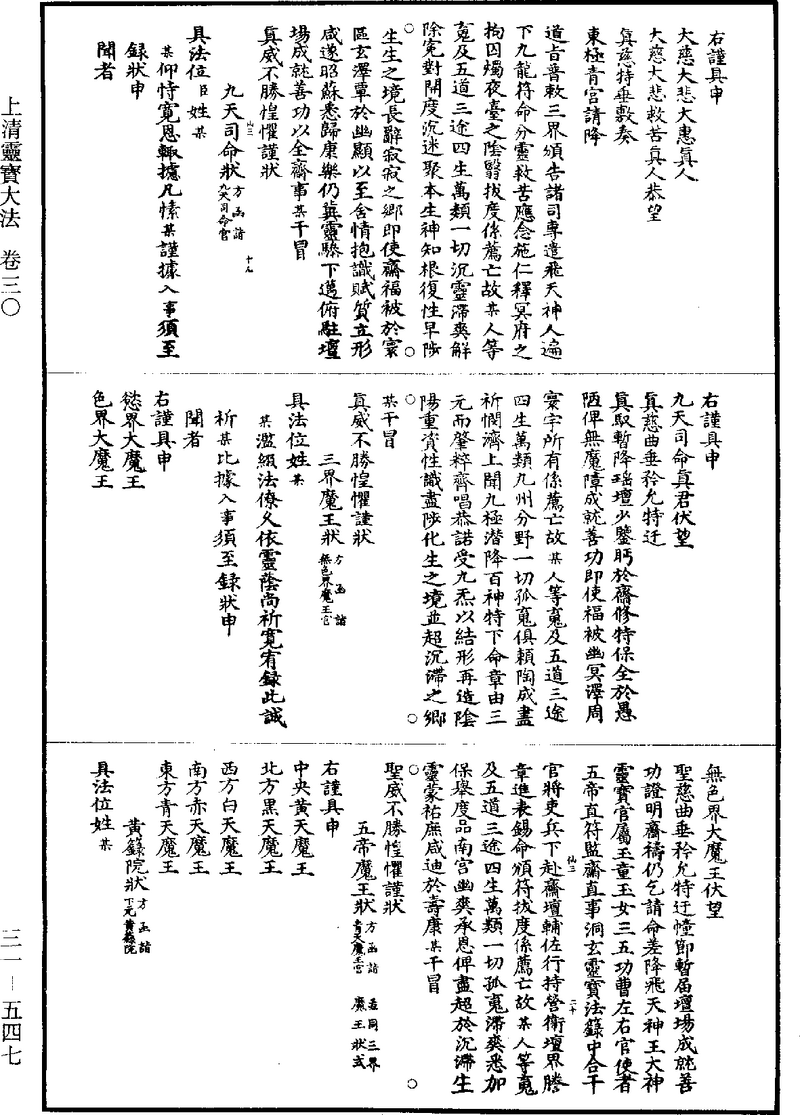 上清靈寶大法　卷三〇
三一－五四七
右謹具申
大慈大悲大惠眞人
大慈大悲救苦眞人恭望
眞慈特垂敷奏
東極青宮請降
道旨普敕三界頒告諸司專遣飛天神人遍
下九龍符命分靈救苦應念施仁釋冥府之
拘囚燭夜臺之陰翳拔度係薦亡故某人等
䰟及五道三途四生萬類一切沉靈滯爽解
除冤對開度沉迷聚本生神知根復性早陟
生生之境長辭寂寂之鄉即使齋福被於寰
區玄澤覃於幽顯以至含情抱識賦質立形
咸遂昭蘇悉歸康樂仍冀靈驂下邁俯駐壇
場成就善功以全齋事某干冒
眞威不勝惶懼謹狀
九天司命狀方函諸九天司命官
仙三　十九
具法位臣姓某
某仰恃寬恩輒攄凡愫某謹據入事須至
錄狀申
聞者
右謹具申
九天司命眞君伏望
眞慈曲垂矜允特迂
眞馭暫降瑶壇少鑒眄於齋修特保全於愚
陋俾無魔障成就善功即使福被幽冥澤周
寰宇所有係薦亡故某人等䰟及五道三途
四生萬類九州分野一切孤䰟俱賴陶成盡
祈憫濟上開九極潜降百神特下命章由三
元而肇粹齊唱恭諾受九炁以結形再造陰
陽重資性識盡陟化生之境並超沉滯之鄉
某干冒
眞威不勝惶懼謹狀
三界魔王狀方函諸無色界魔王官
具法位姓某
某濫綴法僚久依靈蔭尚祈寬宥錄此誠
祈某比據入事須至錄狀申
聞者
右謹具申
慾界大魔王
色界大魔王
無色界大魔王伏望
聖慈曲垂矜允特迂幢節暫届壇場成就善
功證明齋禱仍乞請命差降飛天神王大神
靈寶官屬玉童玉女三五功曹左右官使者
五帝直符監齋直事洞玄靈寶法籙中合干
仙三　二十
官將吏兵下赴齋壇輔佐行持營衛壇界謄
章進表錫命頒符拔度係薦亡故某人等䰟
及五道三途四生萬類一切孤䰟滯爽悉加
保舉度品南宮幽爽承恩俾盡超於沉滯生
靈蒙祐庶咸迪於壽康某干冒
聖威不勝惶懼謹狀
五帝魔王狀方函諸青天魔王官　魔王狀或並同三界
右謹具申
中央黃天魔王
北方黑天魔王
西方白天魔王
南方赤天魔王
東方青天魔王
黃籙院狀方函諸下元黃籙院
具法位姓某